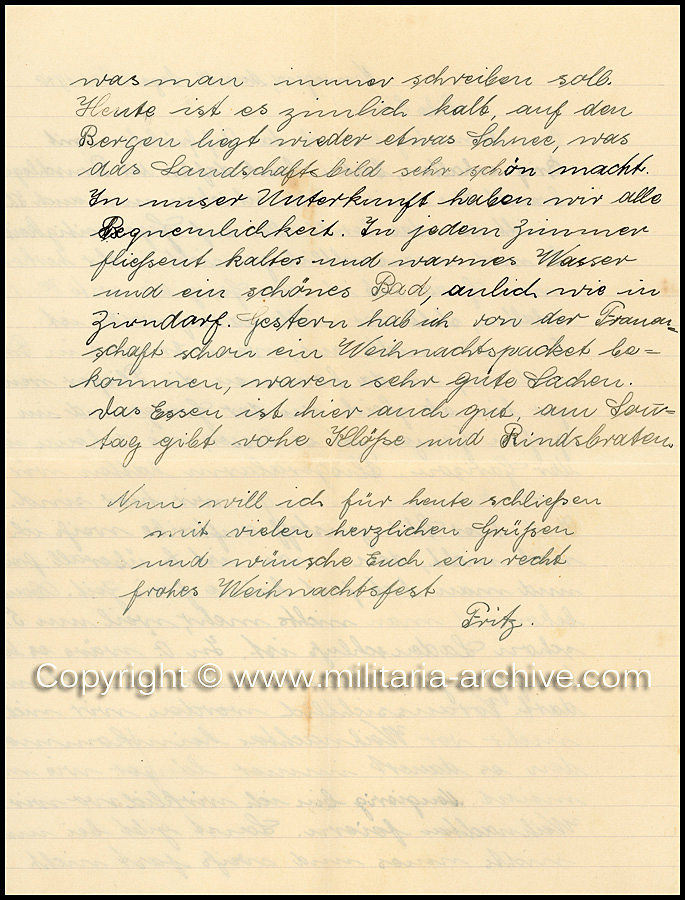 was man immer schreiben soll.
Heute ist es zimlich kalt, auf den
Bergen liegt wieder etwas Schnee, was
das Landschaftsbild sehr schön macht.
In unser Unterkunft haben wir alle
Beqnemlichkeit. In jedem Zimmer
fließent kaltes und warmes Wasser
und ein schönes Bad, änlich wie in
Zirndorf. Gestern hab ich von der Frauen-
schaft schon ein Weihnachtspacket be=
kommen, waren sehr gute Sachen.
Das Essen ist hier auch gut, am Son̄=
tag gibt rohe Klöße und Rindsbraten.
Nun will ich für heute schließen
mit vielen herzlichen Grüßen
und wünsche Euch ein recht
frohes Weihnachtsfest
Fritz.
Copyright © www.militaria-archive.com